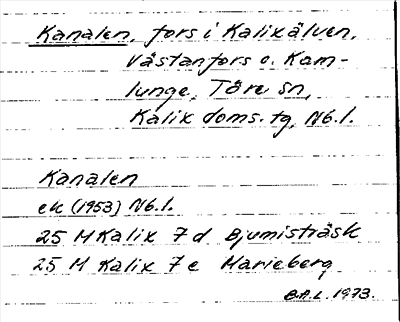 Kanalen, fors i Kalixälven,
Västanfors o. Kam-
lunge, Töre sn,
Kalix doms. tg, Nb. l.
Kanalen
ek (1953) Nb. l.
25 M Kalix 7 d Bjumisträsk
25 M Kalix 7 e Marieberg
B.A.L. 1973.